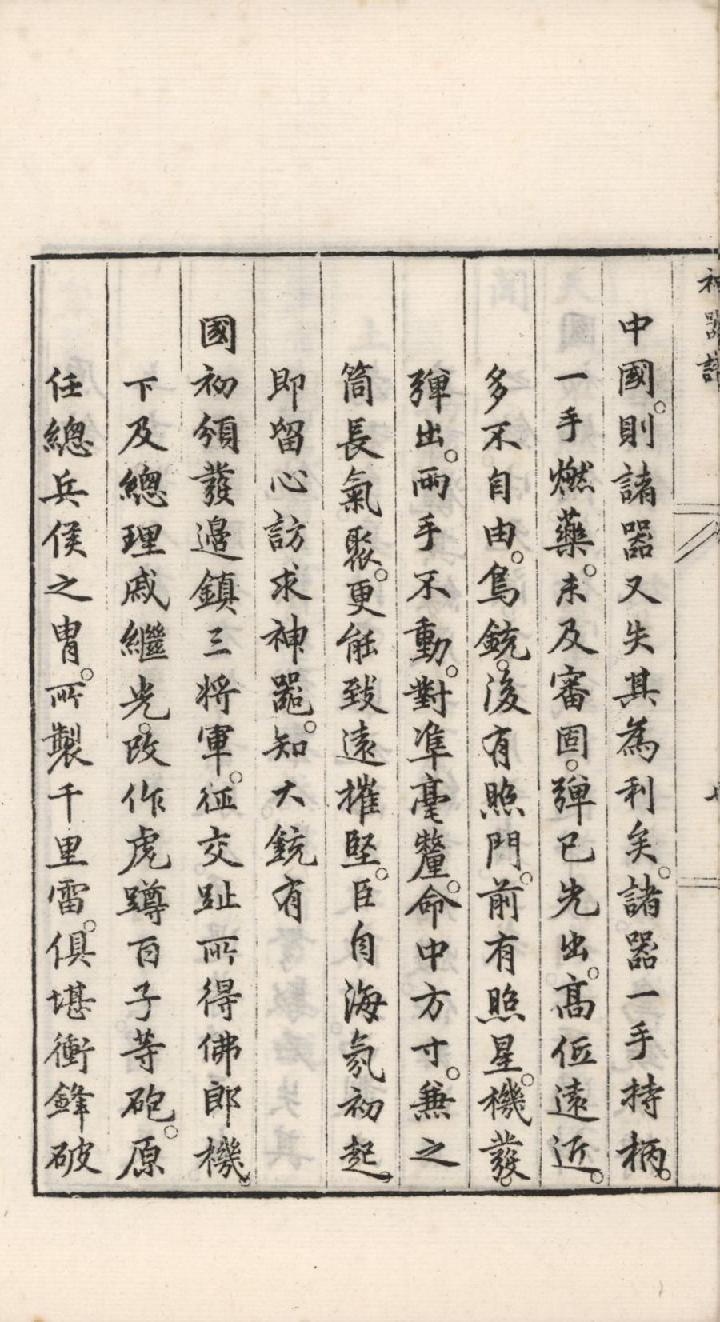 神器譜
中國。則諸器又失其為利矣。諸器一手持柄。
一手燃藥。未及審固。彈已先出。高低遠近。
多不自由。鳥銃。後有照門。前有照星。機發
彈出。兩手不動。對準毫釐。命中方寸。兼之
筒長氣聚。更能致遠摧堅。臣自海氛初起
即留心訪求神器。知大銃有
國初頒發邊鎮三將軍。征交趾所得佛郎機。
下及總理戚繼光。改作虎蹲百子等砲。原
任總兵侯之胄。所製千里雷。俱堪衝鋒破